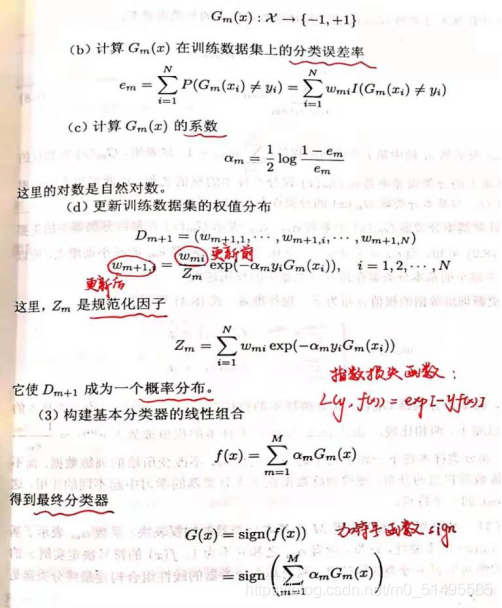 G_m(x) : 𝒳 → {-1, +1}
(b) 计算 G_m(x) 在训练数据集上的分类误差率
e_m = \sum_{i=1}^{N} P(G_m(x_i) ≠ y_i) = \sum_{i=1}^{N} w_{mi} I(G_m(x_i) ≠ y_i)
(c) 计算 G_m(x) 的系数
α_m = \frac{1}{2} log \frac{1 - e_m}{e_m}
这里的对数是自然对数。
(d) 更新训练数据集的权值分布
D_{m+1} = (w_{m+1,1}, ···, w_{m+1,i}, ···, w_{m+1,N})
w_{m+1,i} = \frac{w_{mi}}{Z_m} exp(-α_m y_i G_m(x_i)), i = 1, 2, ···, N
更新前
更新后
这里，Z_m 是规范化因子
Z_m = \sum_{i=1}^{N} w_{mi} exp(-α_m y_i G_m(x_i))
它使 D_{m+1} 成为一个概率分布。
指数损失函数：
L(y, f(x)) = exp[-yf(x)]
(3) 构建基本分类器的线性组合
f(x) = \sum_{m=1}^{M} α_m G_m(x)
得到最终分类器
G(x) = sign(f(x))
为符号函数 sign
= sign( \sum_{m=1}^{M} α_m G_m(x) )
https://blog.csdn.net/m0_51495585